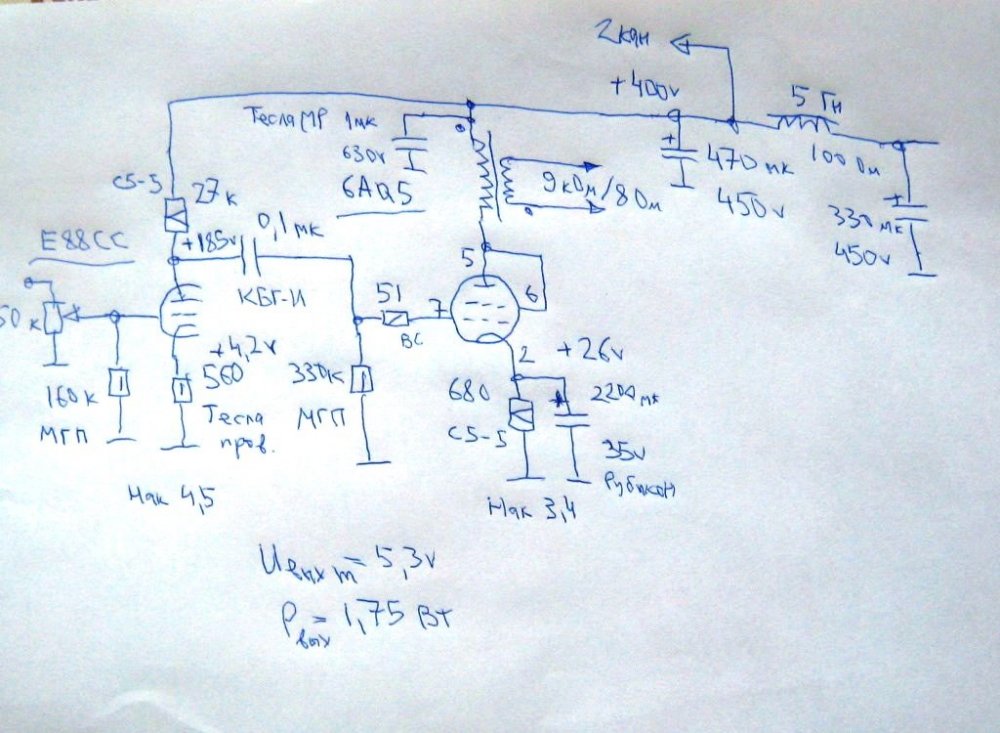 2кан
+400v
5 Гн
100 Ом
470 мк
450v
330 мк
450v
Тесла МР 1мк
630v
6AQ5
9кОм/8Ом
С5-5
27к
+185v
0,1мк
КБГ-И
E88CC
50к
160к
МГП
+4,2v
560
Тесла
пров.
330к
МГП
51
ВС
5
6
7
2
+26v
680
С5-5
2200 мк
35v
Рубикон
Нак 4,5
Нак 3,4
Uвых m = 5,3v
Pвых = 1,75 Вт